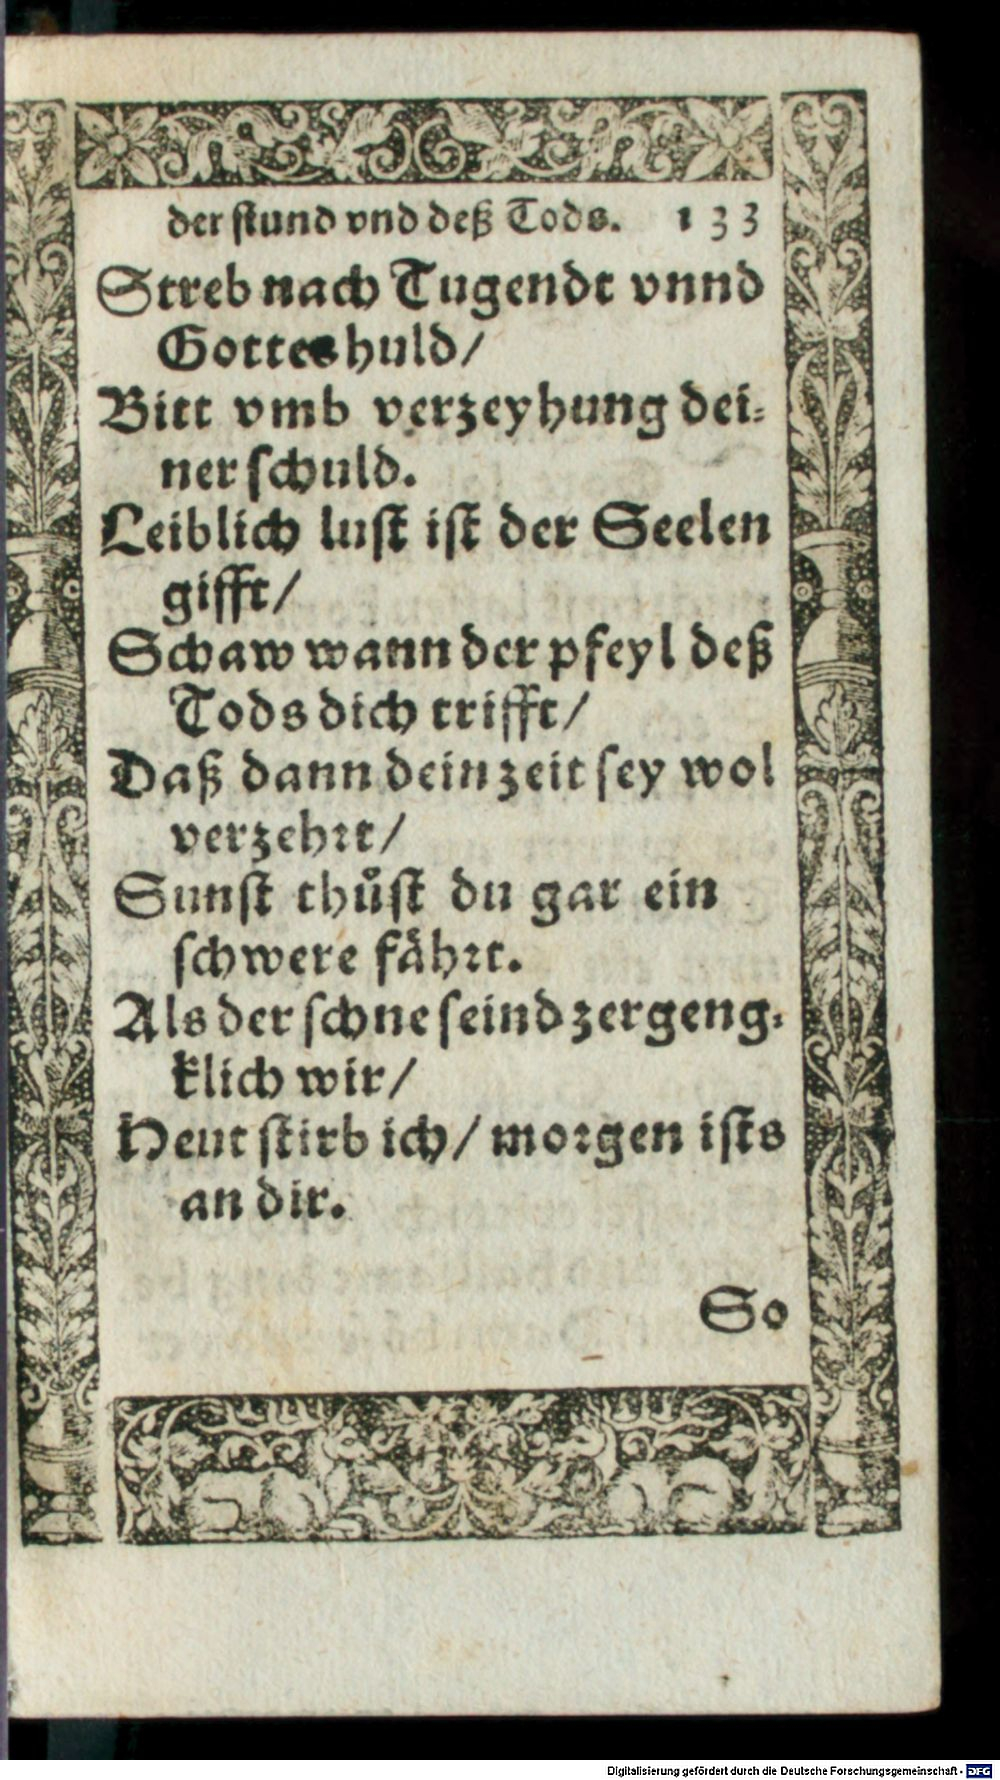 der ſtund vnd deß Tods. 133
Streb nach Tugendt vnnd
Gottes huld/
Bitt vmb verzeyhung dei⸗
ner ſchuld.
Leiblich luſt iſt der Seelen
gifft/
Schaw wann der pfeyl deß
Tods dich trifft/
Daß dann dein zeit ſey wol
verzehꝛt/
Sunſt thuͤſt du gar ein
ſchwere faͤhꝛt.
Als der ſchne ſeind zergeng⸗
klich wir/
Heut ſtirb ich/ moꝛgen iſts
an dir.
So
Digitalisierung gefördert durch die Deutsche Forschungsgemeinschaft - DFG